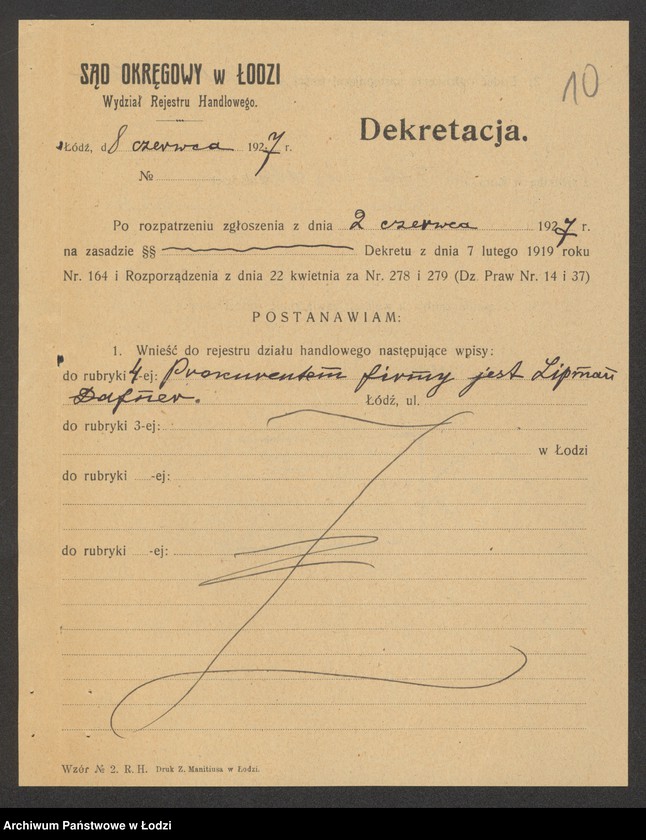 SĄD OKRĘGOWY w ŁODZI
Wydział Rejestru Handlowego.
10
Dekretacja.
Łódź, d 8 czerwca 1927 r.
№
Po rozpatrzeniu zgłoszenia z dnia 2 czerwca 1927 r.
na zasadzie §§ Dekretu z dnia 7 lutego 1919 roku
Nr. 164 i Rozporządzenia z dnia 22 kwietnia za Nr. 278 i 279 (Dz. Praw Nr. 14 i 37)
POSTANAWIAM:
1. Wnieść do rejestru działu handlowego następujące wpisy:
do rubryki 4-ej: Prokurentem firmy jest Lipman
Dafner. Łódź, ul.
do rubryki 3-ej:
w Łodzi
do rubryki -ej:
do rubryki -ej:
Wzór № 2. R. H. Druk Z. Manitiusa w Łodzi.
Archiwum Państwowe w Łodzi